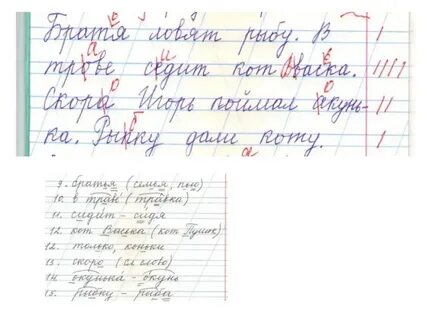 Братя ловят рыбу. В
трове седит кот васка.
Скора Игорь поймал акунь-
ка. Рыпку дали коту.
9. братья (семья, пью)
10. в траве (травка)
11. сидит - сидя
12. кот Васька (кот Пушок)
12. только, коньки
13. скоро (сл. слово)
14. окунька - окунь
15. рыбку - рыба